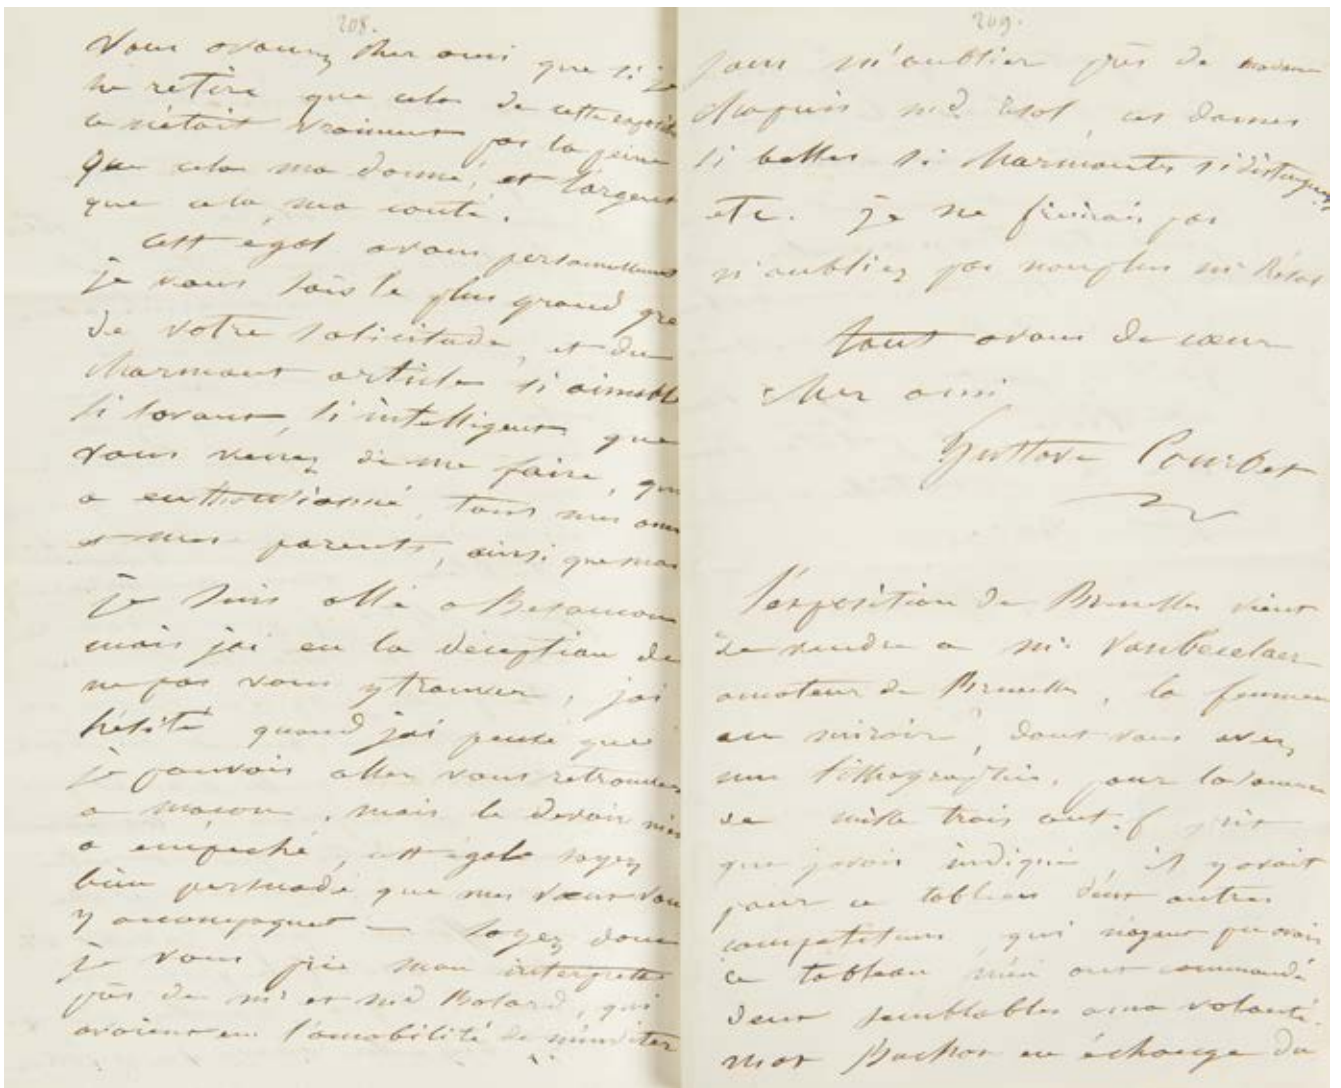 208.
Vous avouerez cher ami que si je
ne retire que cela de cette exposition
ce n'était vraiment pas la peine
que cela ma donné, et l'argent
que cela ma couté.
Cest égal avous personellement
je vous sais le plus grand gre
de votre solicitude, et du
charmant article si aimable
si savant, si intelligent que
vous venez de me faire, qui
a enthousiasmé, tous mes amis
et mes parents, ainsi que moi
je suis allé a Besancon
mais jai eu la déception de
ne pas vous y trouver, jai
hésité quand jai pensé que
je pouvais aller vous retrouver
a macon, mais le devoir m'en
a empeché, cest égal soyez
bien persuadé que mes vœux vous
y accompagnent — soyez donc
je vous prie mon interprete
près de mr et md Bolard, qui
avaient eu l'amabilité de m'inviter
209.
sans m'oublier près de madame
md ces dames
si belles si charmantes si distinguées
etc. je ne finirais pas
n'oubliez pas nonplus mr
tout avous de cœur
cher ami
Gustave Courbet
l'exposition de Bruxelles vient
de vendre a mr Vanbecelaer
amateur de Bruxelles, la femme
au miroir, dont vous avez
une lithographie, pour la somme
de mille trois cent f prix
que javais indiqué, il yavait
pour ce tableau deux autres
competiteurs, qui n'ayant pu avoir
ce tableau m'en ont commandé
deux semblables ama volonté.
en échange du